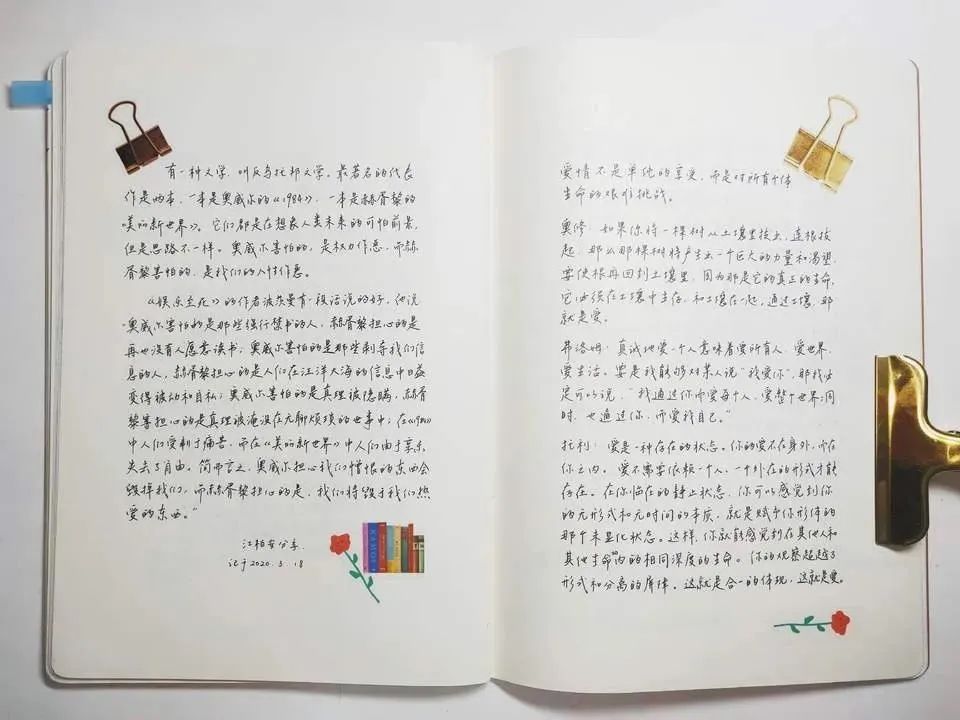 有一种文学，叫反乌托邦文学。最著名的代表
作是两本，一本是奥威尔的《1984》，一本是赫胥黎的
《美丽新世界》。它们都是在想象人类未来的可怕前景，
但是思路不一样。奥威尔害怕的，是权力作恶，而赫
胥黎害怕的，是我们的人性作恶。
《娱乐至死》的作者波兹曼有一段话说的好，他说：
"奥威尔害怕的是那些强行禁书的人，赫胥黎担心的是
再也没有人愿意读书；奥威尔害怕的是那些剥夺我们信
息的人，赫胥黎担心的是人们在汪洋大海的信息中日益
变得被动和自私；奥威尔害怕的是真理被隐瞒，赫胥
黎担心的是真理被淹没在无聊烦琐的世事中；在《1984》
中人们受制于痛苦，而在《美丽新世界》中人们由于享乐
失去了自由。简而言之，奥威尔担心我们憎恨的东西会
毁掉我们，而赫胥黎担心的是，我们将毁于我们热
爱的东西。"
江柏安分享.
记于2020.3.18
KAMOST
爱情不是单纯的享受，而是对所有个体
生命的艰难挑战。
奥修：如果你将一棵树从土壤里拔出，连根拔
起，那么那棵树将产生出一个巨大的力量和渴望，
要使根再回到土壤里，因为那是它的真正的生命，
它必须在土壤中生存，和土壤在一起，通过土壤，那
就是爱。
弗洛姆：真诚地爱一个人意味着爱所有人，爱世界，
爱生活。要是我能够对某人说"我爱你"，那我必
定可以说，"我通过你而爱每个人，爱整个世界；同
时，也通过你，而爱我自己。"
托利：爱是一种存在的状态。你的爱不在身外，而在
你之内。爱不需要依赖一个人，一个外在的形式才能
存在。在你临在的静止状态，你可以感觉到你
的无形式和无时间的本质，就是赋予你形体的
那个未显化状态。这样，你就能感觉到在其他人和
其他生命内的相同深度的生命。你的观察超越了
形式和分离的屏障。这就是合一的体现，这就是爱。